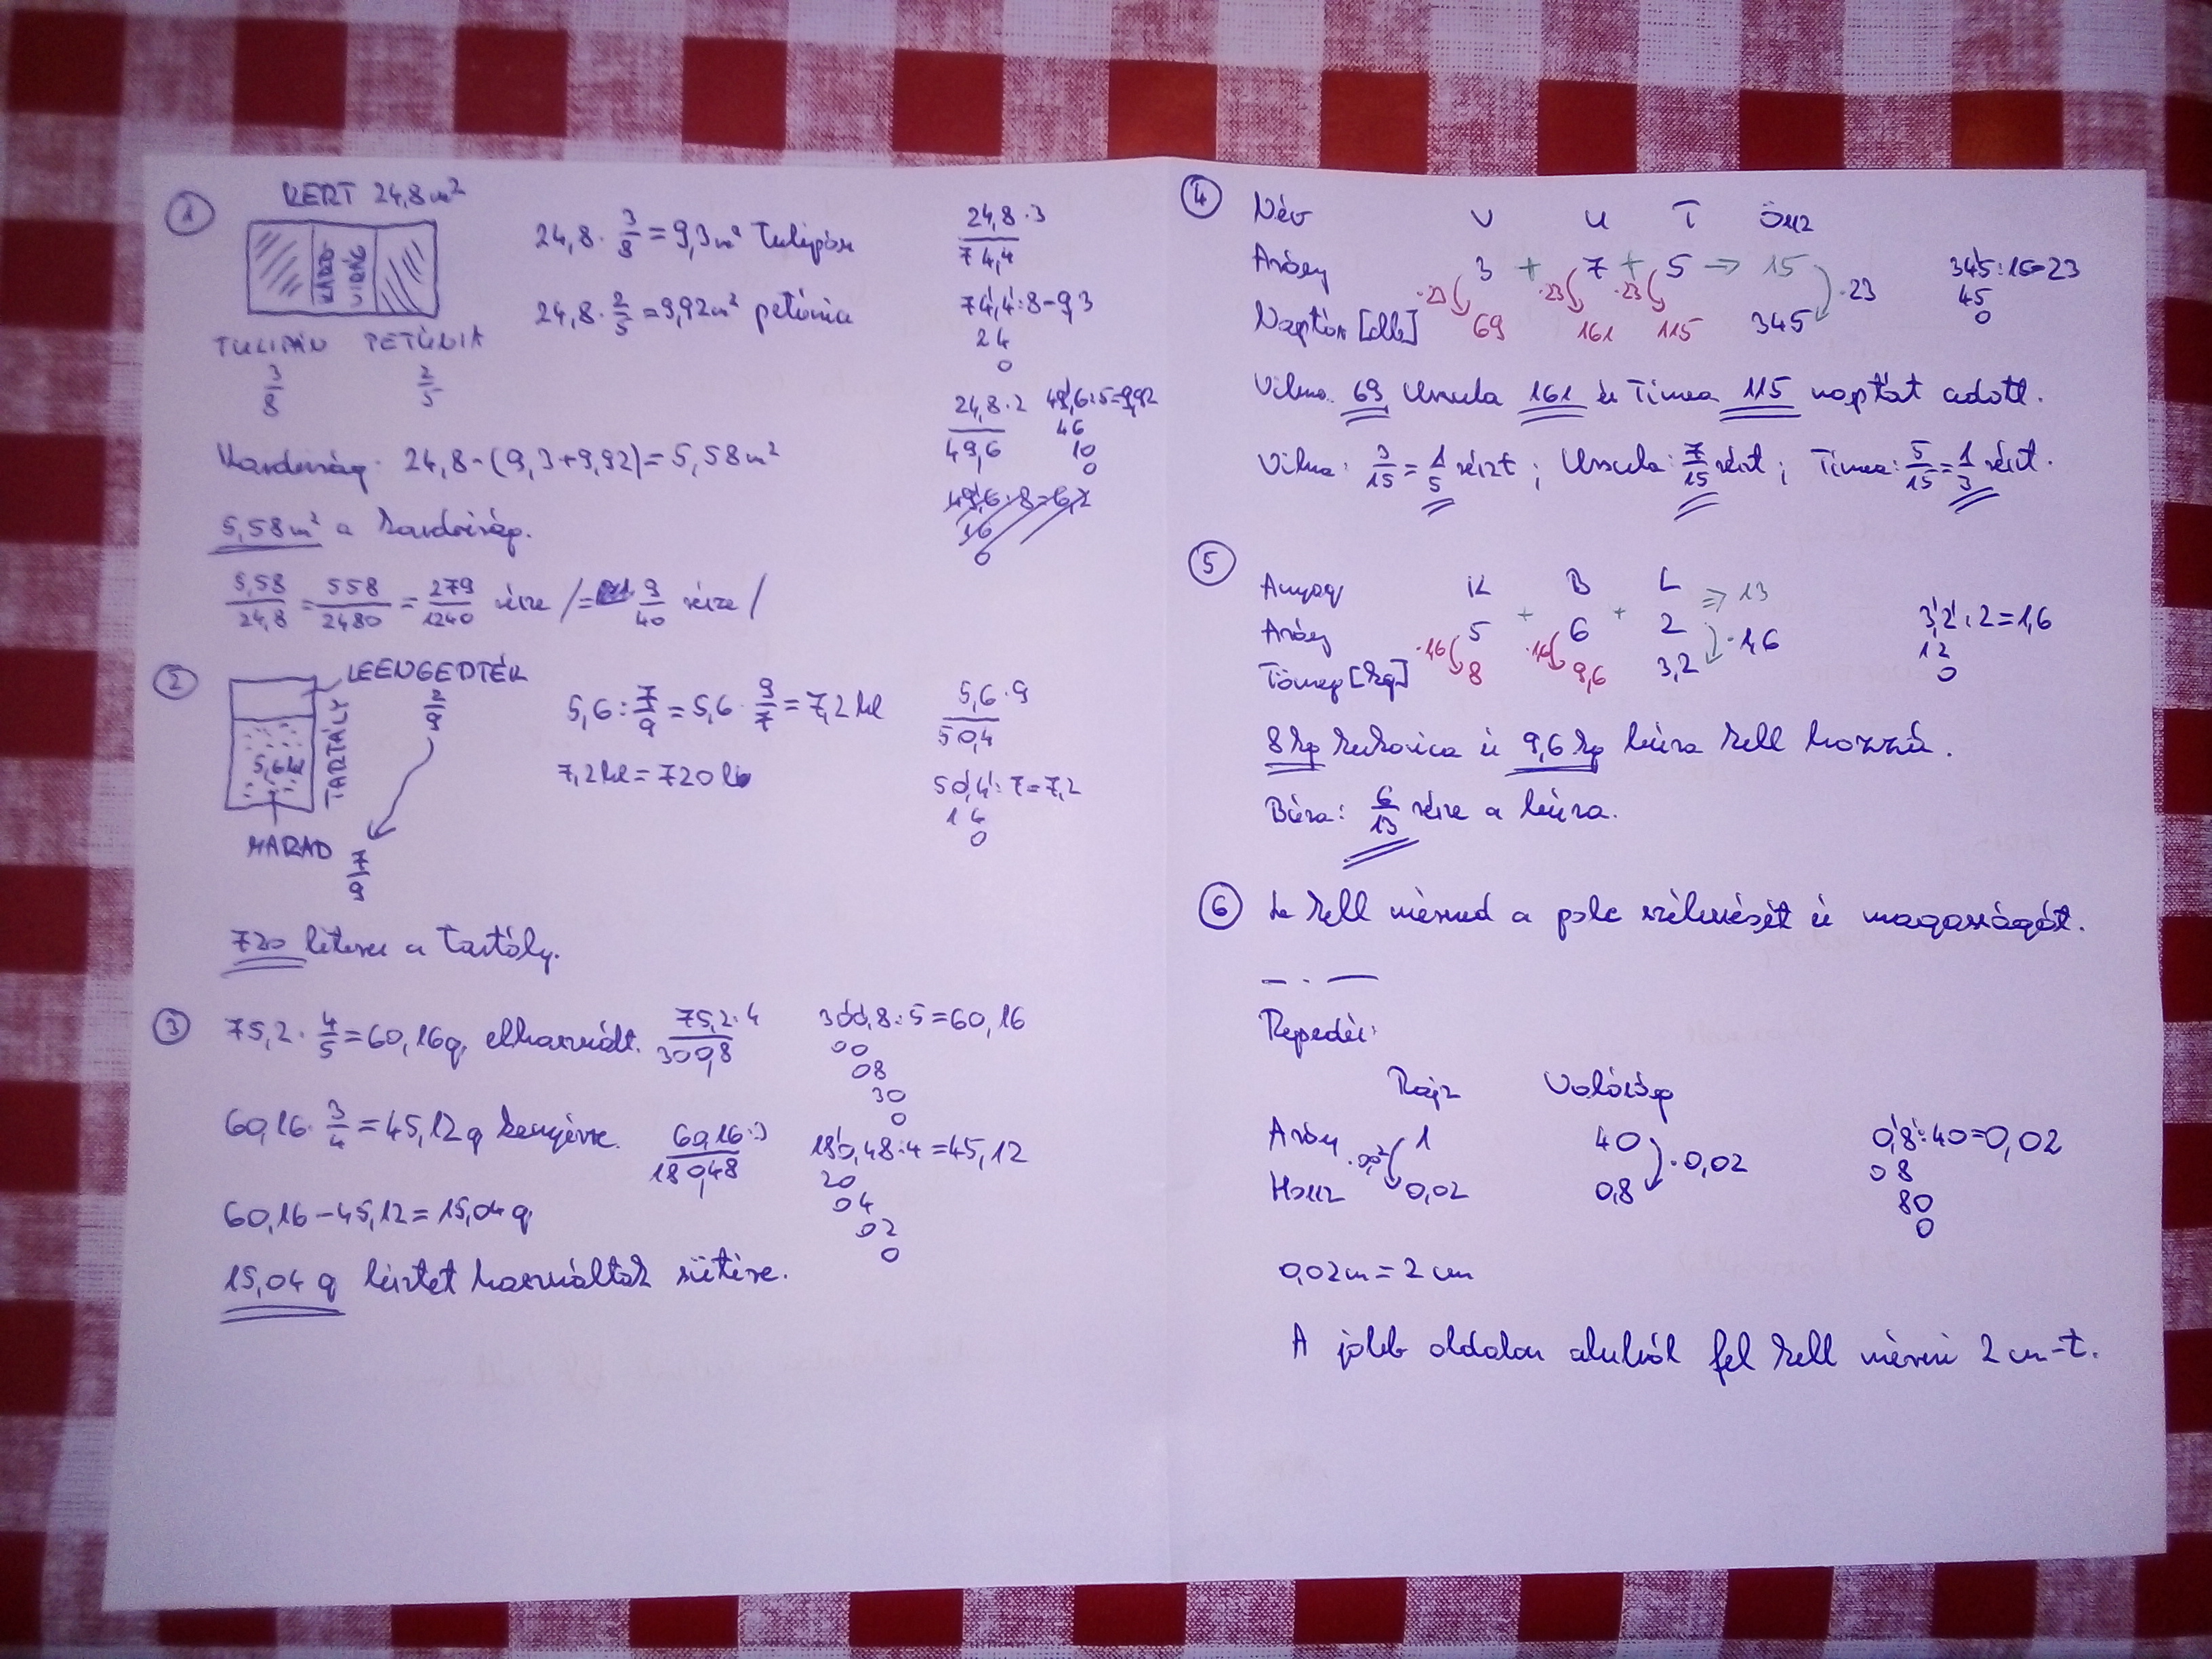 ①
KERT 24,8 m²
KARD-
VIRÁG
TULIPÁN PETÚNIA
3/8 2/5
24,8 · 3/8 = 9,3 m² tulipán
24,8 · 2/5 = 9,92 m² petúnia
24,8 · 3
74,4
74,4 : 8 = 9,3
24
0
24,8 · 2
49,6
49,6 : 5 = 9,92
46
10
0
49,6 : 8 = 6,2
16
0
Kardvirág: 24,8 - (9,3 + 9,92) = 5,58 m²
5,58 m² a kardvirág.
5,58/24,8 = 558/2480 = 279/1240 része /= 9/40 része/
②
LEENGEDTÉK
2/9
TARTÁLY
5,6 hl
MARAD
7/9
5,6 : 7/9 = 5,6 · 9/7 = 7,2 hl
7,2 hl = 720 l
5,6 · 9
50,4
50,4 : 7 = 7,2
14
0
720 literes a tartály.
③
75,2 · 4/5 = 60,16 q elhasznált.
75,2 · 4
300,8
300,8 : 5 = 60,16
00
08
30
0
60,16 · 3/4 = 45,12 q kenyérre.
60,16 · 3
180,48
180,48 : 4 = 45,12
20
04
02
0
60,16 - 45,12 = 15,04 q
15,04 q lisztet használtak sütire.
④
Név V U T Össz
Arány 3 + 7 + 5 → 15
·23 ·23 ·23 ·23
Naptár [db] 69 161 115 345
345 : 15 = 23
45
0
Vilma 69 Ursula 161 és Tímea 115 naptát adott.
Vilma: 3/15 = 1/5 részt ; Ursula: 7/15 részt ; Tímea: 5/15 = 1/3 részt.
⑤
Anyag K B L ⇒ 13
Arány 5 + 6 + 2
·1,6 ·1,6 ·1,6
Tömeg [kg] 8 9,6 3,2
3,2 : 2 = 1,6
12
0
8 kg kukorica és 9,6 kg búza kell hozzá.
Búza: 6/13 része a búza.
⑥ Le kell mérned a polc szélességét és magasságát.
— . —
Repedés:
Rajz Valóság
Arány 1 40
·0,02 ·0,02
Hossz 0,02 0,8
0,8 : 40 = 0,02
08
80
0
0,02 m = 2 cm
A jobb oldalon alulról fel kell mérni 2 cm-t.